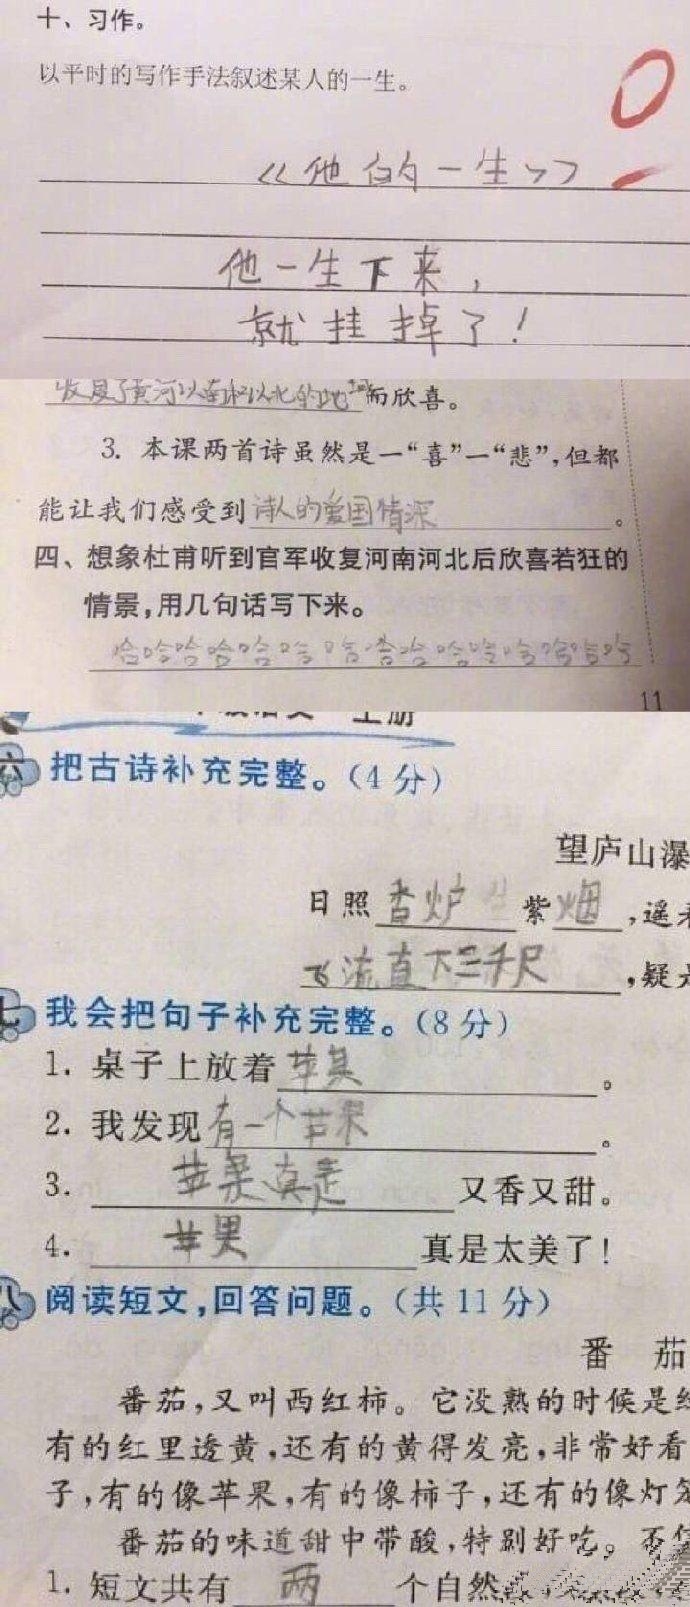 十、习作。
以平时的写作手法叙述某人的一生。
0
《他的一生》
他一生下来，
就挂掉了！
收复了黄河以南和以北的土地而欣喜。
3. 本课两首诗虽然是一“喜”一“悲”，但都
能让我们感受到诗人的爱国情深。
四、想象杜甫听到官军收复河南河北后欣喜若狂的
情景，用几句话写下来。
哈哈哈哈哈哈哈哈哈哈哈哈哈哈哈
11
上册
六 把古诗补充完整。（4分）
望庐山瀑
日照香炉生紫烟，遥
飞流直下三千尺，疑
七 我会把句子补充完整。（8分）
1. 桌子上放着苹果。
2. 我发现有一个苹果。
3. 苹果真是又香又甜。
4. 苹果真是太美了！
八 阅读短文，回答问题。（共11分）
番 茄
番茄，又叫西红柿。它没熟的时候是
有的红里透黄，还有的黄得发亮，非常好看
子，有的像苹果，有的像柿子，还有的像灯
番茄的味道甜中带酸，特别好吃。不
1. 短文共有两个自然